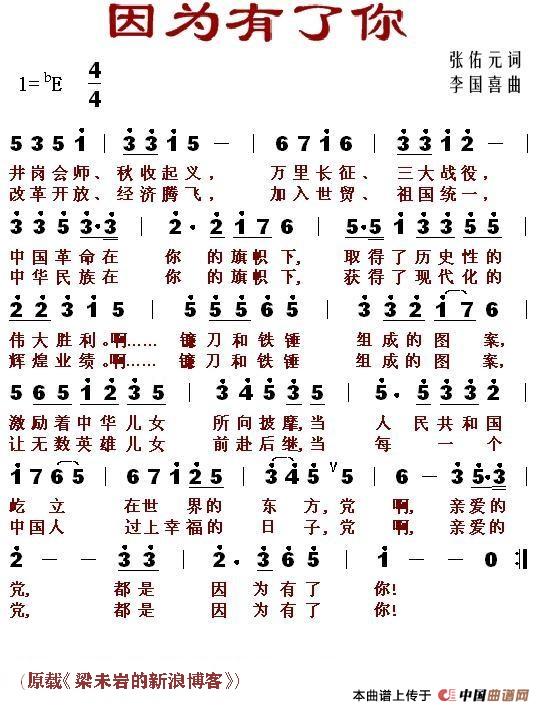 因为有了你
张佑元词
1=ᵇE 4/4
李国喜曲
5 3 5 1 | 3 3 1 5 — | 6 7 1 6 | 3 3 1 2 — |
井岗会师、秋收起义， 万里长征、三大战役，
改革开放、经济腾飞， 加入世贸、祖国统一，
3 3 5 3·3 | 2 · 2 1 7 6 | 5·5 1 3 3 5 5 |
中国革命在 你 的旗帜下, 取得了历史性的
中华民族在 你 的旗帜下, 获得了现代化的
2 2 3 1 5 | 5 5 5 6 5 | 3 3 2 1 7 6 |
伟大胜利。啊…… 镰刀和铁锤 组成的图案,
辉煌业绩。啊…… 镰刀和铁锤 组成的图案,
5 6 5 1 2 3 5 | 3 4 5 3 5 | 5 · 5 3 3 2 |
激励着中华儿女 所向披摩,当 人民共和国
让无数英雄儿女 前赴后继,当 每一个
1 7 6 5 | 6 7 1 2 · | 3 4 5 5 V | 6 — 6 5·3 |
屹立 在世界的 东方,党 啊, 亲爱的
中国人 过上幸福的 日子,党 啊, 亲爱的
2 — — 3 3 | 2 · 3 5 6 | 1 — — 0 :||
党, 都是 因为有了 你!
党, 都是 因为有了 你!
(原载《梁未岩的新浪博客》)
本曲谱上传于 中国曲谱网